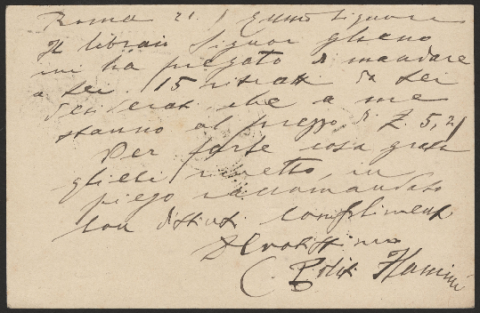 Roma 21. 1 Signore
Il libraio Signor
mi ha pregato di mandare
a Lei 15 ritratti da Lei
desiderati che a me
stanno al prezzo di L. 5,2
Per farle cosa grata
glieli rimetto, in
piego raccomandato
Con distinti complimenti
Devotissimo
C.